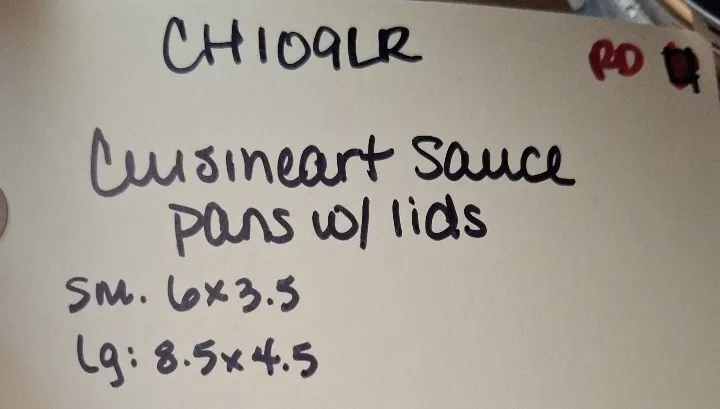 CH109LR
RD
Cuisineart Sauce
pans w/ lids
sm. 6x3.5
lg: 8.5x4.5